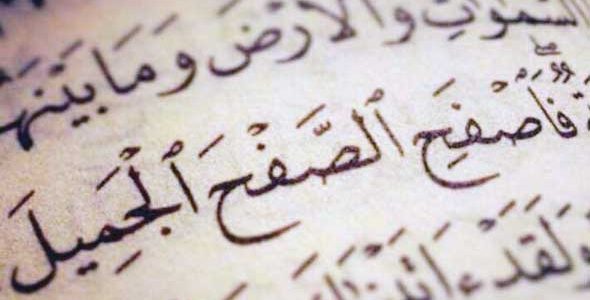 السَّمَٰوَٰتِ وَالْأَرْضَ وَمَا بَيْنَهُ
فَاصْفَحِ الصَّفْحَ الْجَمِيلَ
وَلَقَدْ ءَاتَيْنَٰكَ